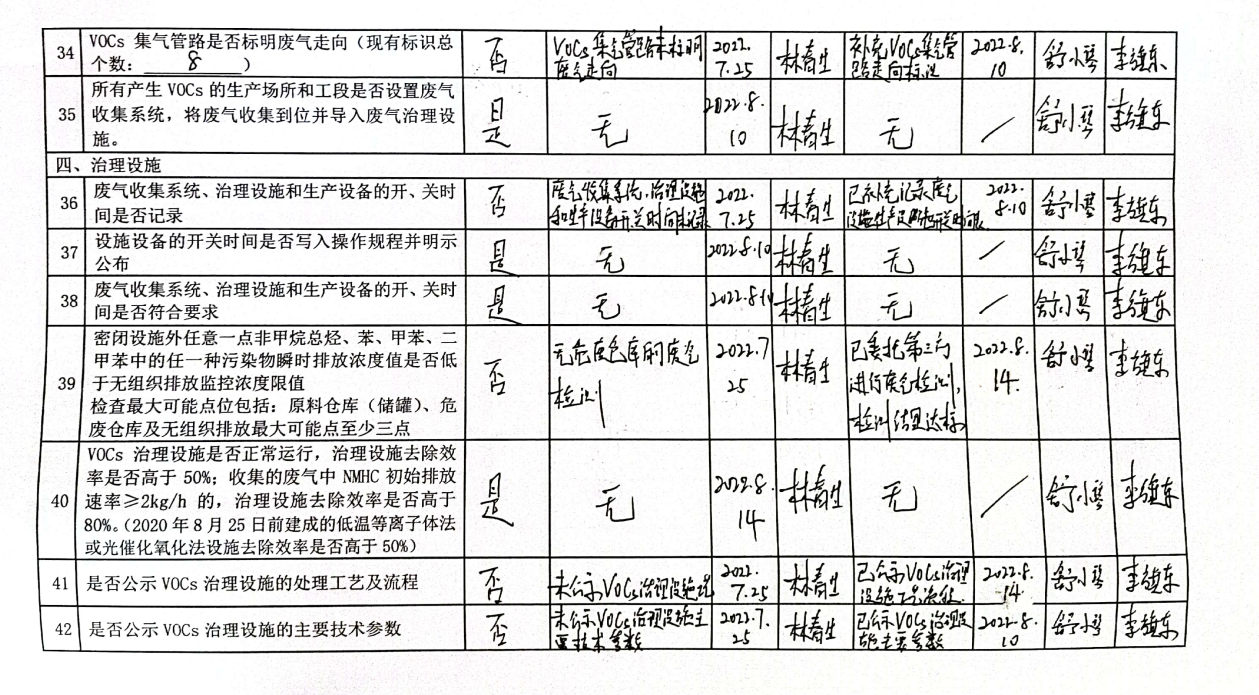 34 VOCs 集气管路是否标明废气走向（现有标识总 否 VOCs集气管路未标明 2022. 林春生 补充VOCs集气管 2022.8. 舒小琴 李雄东
个数： 8 ） 废气走向 7.25 路走向标识 10
所有产生 VOCs 的生产场所和工段是否设置废气 2022.8.
35 收集系统，将废气收集到位并导入废气治理设 是 无 10 林春生 无 / 舒小琴 李雄东
施。
四、治理设施
36 废气收集系统、治理设施和生产设备的开、关时 否 废气收集系统、治理设施 2022. 林春生 已补充记录废气 2022. 舒小琴 李雄东
间是否记录 和生产设备开关时间未记录 7.25 8.10
37 设施设备的开关时间是否写入操作规程并明示 是 无 2022.8.10 林春生 无 / 舒小琴 李雄东
公布
38 废气收集系统、治理设施和生产设备的开、关时 是 无 2022.8.10 林春生 无 / 舒小琴 李雄东
间是否符合要求
密闭设施外任意一点非甲烷总烃、苯、甲苯、二 无危废仓库的废气 2022.7 已委托第三方 2022.8.
甲苯中的任一种污染物瞬时排放浓度值是否低 否 25 林春生 进行废气检测， 14. 舒小琴 李雄东
39 于无组织排放监控浓度限值 检测 检测结果达标
检查最大可能点位包括：原料仓库（储罐）、危
废仓库及无组织排放最大可能点至少三点
VOCs 治理设施是否正常运行，治理设施去除效
率是否高于 50%；收集的废气中 NMHC 初始排放 2022.8.
40 速率≥2kg/h 的，治理设施去除效率是否高于 是 无 14 林春生 无 / 舒小琴 李雄东
80%。（2020 年 8 月 25 日前建成的低温等离子体法
或光催化氧化法设施去除效率是否高于 50%）
41 是否公示 VOCs 治理设施的处理工艺及流程 否 未公示VOCs治理设施处理 2022. 林春生 已公示VOCs治理 2022.8. 舒小琴 李雄东
7.25 设施工艺流程. 14
42 是否公示 VOCs 治理设施的主要技术参数 否 未公示VOCs治理设施主 2022.7. 林春生 已公示VOCs治理设 2022.8. 舒小琴 李雄东
要技术参数 25 施主要参数 10